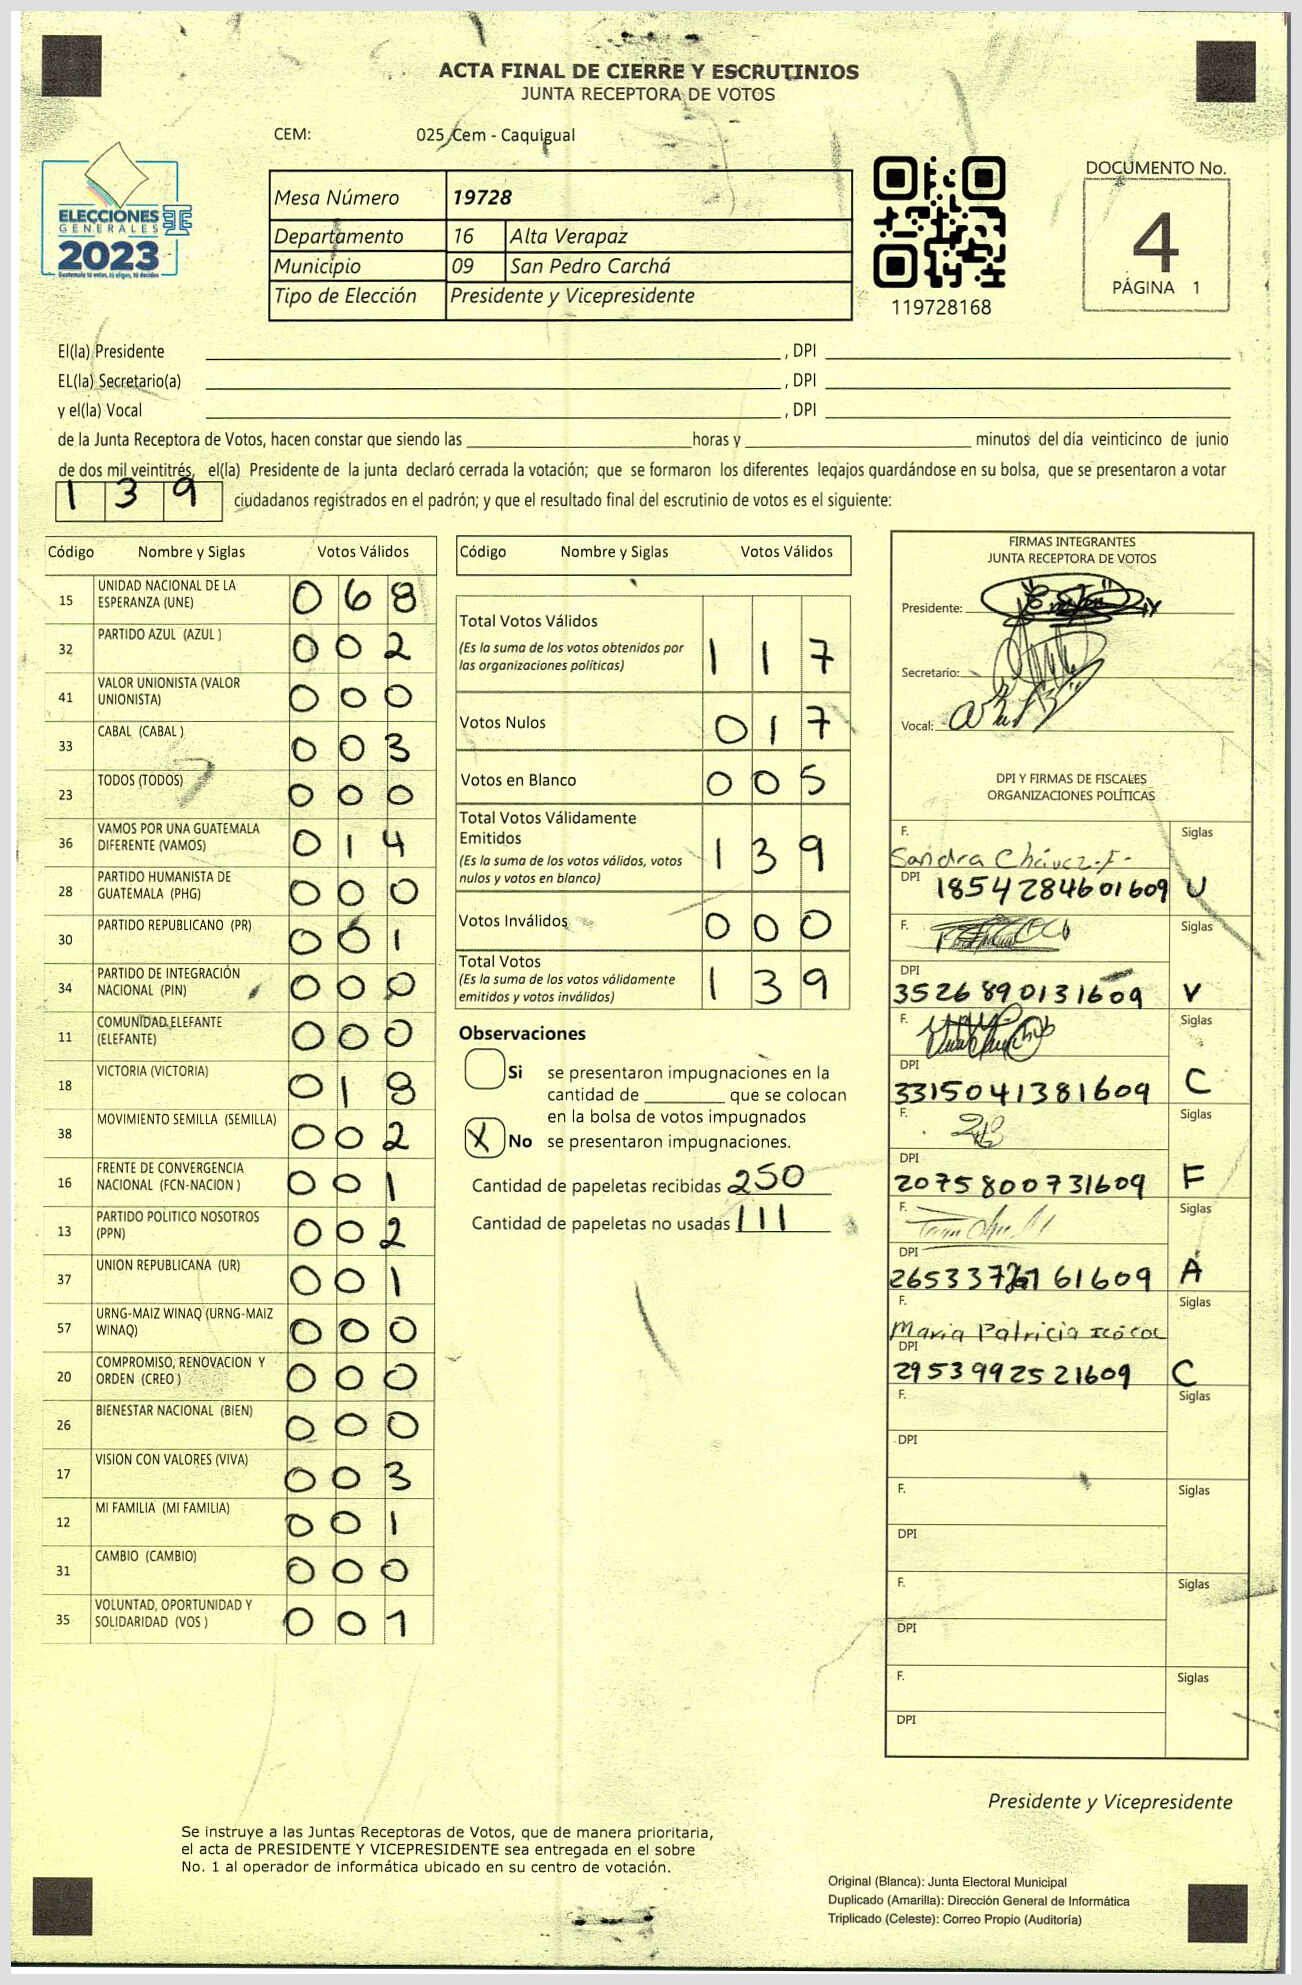 ACTA FINAL DE CIERRE Y ESCRUTINIOS
JUNTA RECEPTORA DE VOTOS
CEM: 025 Cem - Caquigual
ELECCIONES
GENERALES
2023
Guatemala tú votas, tú eliges, tú decides
Mesa Número 19728
Departamento 16 Alta Verapaz
Municipio 09 San Pedro Carchá
Tipo de Elección Presidente y Vicepresidente
119728168
DOCUMENTO No.
4
PÁGINA 1
El(la) Presidente , DPI
EL(la) Secretario(a) , DPI
y el(la) Vocal , DPI
de la Junta Receptora de Votos, hacen constar que siendo las horas y minutos del día veinticinco de junio
de dos mil veintitrés, el(la) Presidente de la junta declaró cerrada la votación; que se formaron los diferentes legajos guardándose en su bolsa, que se presentaron a votar
1 3 9 ciudadanos registrados en el padrón; y que el resultado final del escrutinio de votos es el siguiente:
Código Nombre y Siglas Votos Válidos
15 UNIDAD NACIONAL DE LA ESPERANZA (UNE) 0 6 8
32 PARTIDO AZUL (AZUL ) 0 0 2
41 VALOR UNIONISTA (VALOR UNIONISTA) 0 0 0
33 CABAL (CABAL ) 0 0 3
23 TODOS (TODOS) 0 0 0
36 VAMOS POR UNA GUATEMALA DIFERENTE (VAMOS) 0 1 4
28 PARTIDO HUMANISTA DE GUATEMALA (PHG) 0 0 0
30 PARTIDO REPUBLICANO (PR) 0 0 1
34 PARTIDO DE INTEGRACIÓN NACIONAL (PIN) 0 0 0
11 COMUNIDAD ELEFANTE (ELEFANTE) 0 0 0
18 VICTORIA (VICTORIA) 0 1 9
38 MOVIMIENTO SEMILLA (SEMILLA) 0 0 2
16 FRENTE DE CONVERGENCIA NACIONAL (FCN-NACION ) 0 0 1
13 PARTIDO POLITICO NOSOTROS (PPN) 0 0 2
37 UNION REPUBLICANA (UR) 0 0 1
57 URNG-MAIZ WINAQ (URNG-MAIZ WINAQ) 0 0 0
20 COMPROMISO, RENOVACION Y ORDEN (CREO ) 0 0 0
26 BIENESTAR NACIONAL (BIEN) 0 0 0
17 VISION CON VALORES (VIVA) 0 0 3
12 MI FAMILIA (MI FAMILIA) 0 0 1
31 CAMBIO (CAMBIO) 0 0 0
35 VOLUNTAD, OPORTUNIDAD Y SOLIDARIDAD (VOS ) 0 0 1
Código Nombre y Siglas Votos Válidos
Total Votos Válidos 1 1 7
(Es la suma de los votos obtenidos por
las organizaciones políticas)
Votos Nulos 0 1 7
Votos en Blanco 0 0 5
Total Votos Válidamente
Emitidos 1 3 9
(Es la suma de los votos válidos, votos
nulos y votos en blanco)
Votos Inválidos 0 0 0
Total Votos 1 3 9
(Es la suma de los votos válidamente
emitidos y votos inválidos)
Observaciones
Si se presentaron impugnaciones en la
cantidad de que se colocan
en la bolsa de votos impugnados
X No se presentaron impugnaciones.
Cantidad de papeletas recibidas 250
Cantidad de papeletas no usadas 111
FIRMAS INTEGRANTES
JUNTA RECEPTORA DE VOTOS
Presidente:
Secretario:
Vocal:
DPI Y FIRMAS DE FISCALES
ORGANIZACIONES POLÍTICAS
F. Siglas
Sandra Chávez.F-
DPI 1854284601609 U
F. Siglas
DPI
3526890131609 V
F. Siglas
DPI
3315041381609 C
F. Siglas
DPI
2075800731609 F
F. Siglas
DPI
A
F. Siglas
Maria Patricia
DPI
2953992521609 C
F. Siglas
DPI
F. Siglas
DPI
F. Siglas
DPI
F. Siglas
DPI
Presidente y Vicepresidente
Se instruye a las Juntas Receptoras de Votos, que de manera prioritaria,
el acta de PRESIDENTE Y VICEPRESIDENTE sea entregada en el sobre
No. 1 al operador de informática ubicado en su centro de votación.
Original (Blanca): Junta Electoral Municipal
Duplicado (Amarilla): Dirección General de Informática
Triplicado (Celeste): Correo Propio (Auditoría)